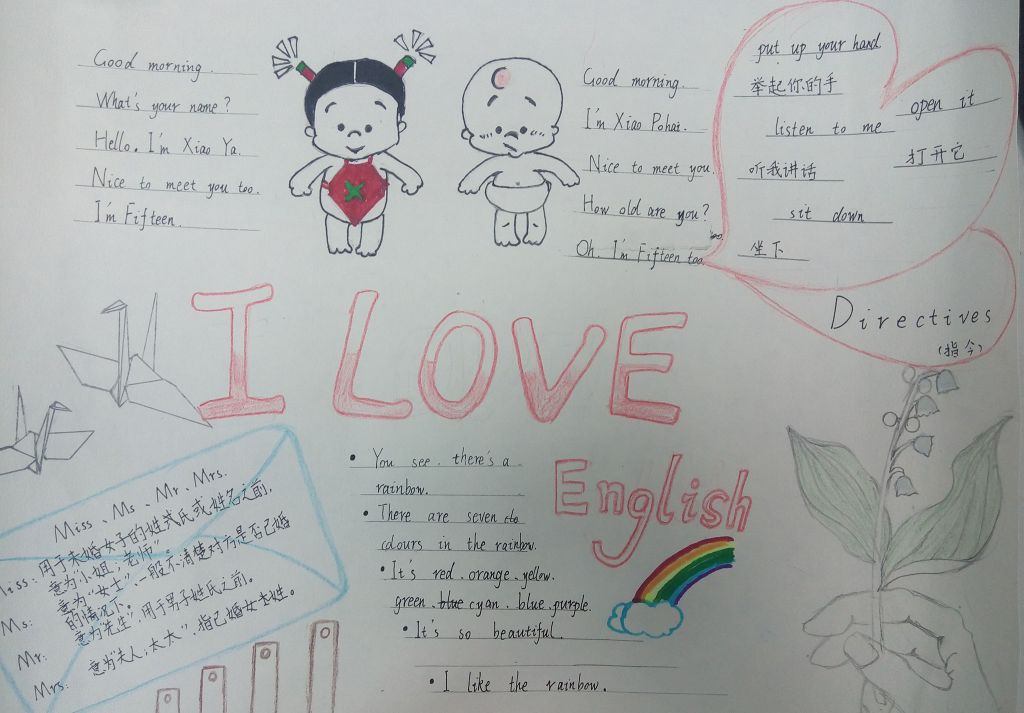 Good morning.
What's your name?
Hello. I'm Xiao Ya.
Nice to meet you too.
I'm Fifteen.
Good morning.
I'm Xiao Pohai.
Nice to meet you.
How old are you?
Oh. I'm Fifteen too.
put up your hand.
举起你的手
open it
listen to me
打开它
听我讲话
sit down
坐下
Directives
(指令)
I LOVE
English
You see. there's a
rainbow.
There are seven
colours in the rainbow.
It's red. orange. yellow.
green. blue cyan. blue. purple.
It's so beautiful.
I like the rainbow.
Miss、Ms、Mr、Mrs.
Miss: 用于未婚女子的姓或姓名之前,
意为“小姐,老师”.
Ms: 意为“女士”,一般不清楚对方是否已婚
的情况下.
Mr: 意为“先生”,用于男子姓氏之前。
Mrs: 意为“夫人,太太”,指已婚女姓。